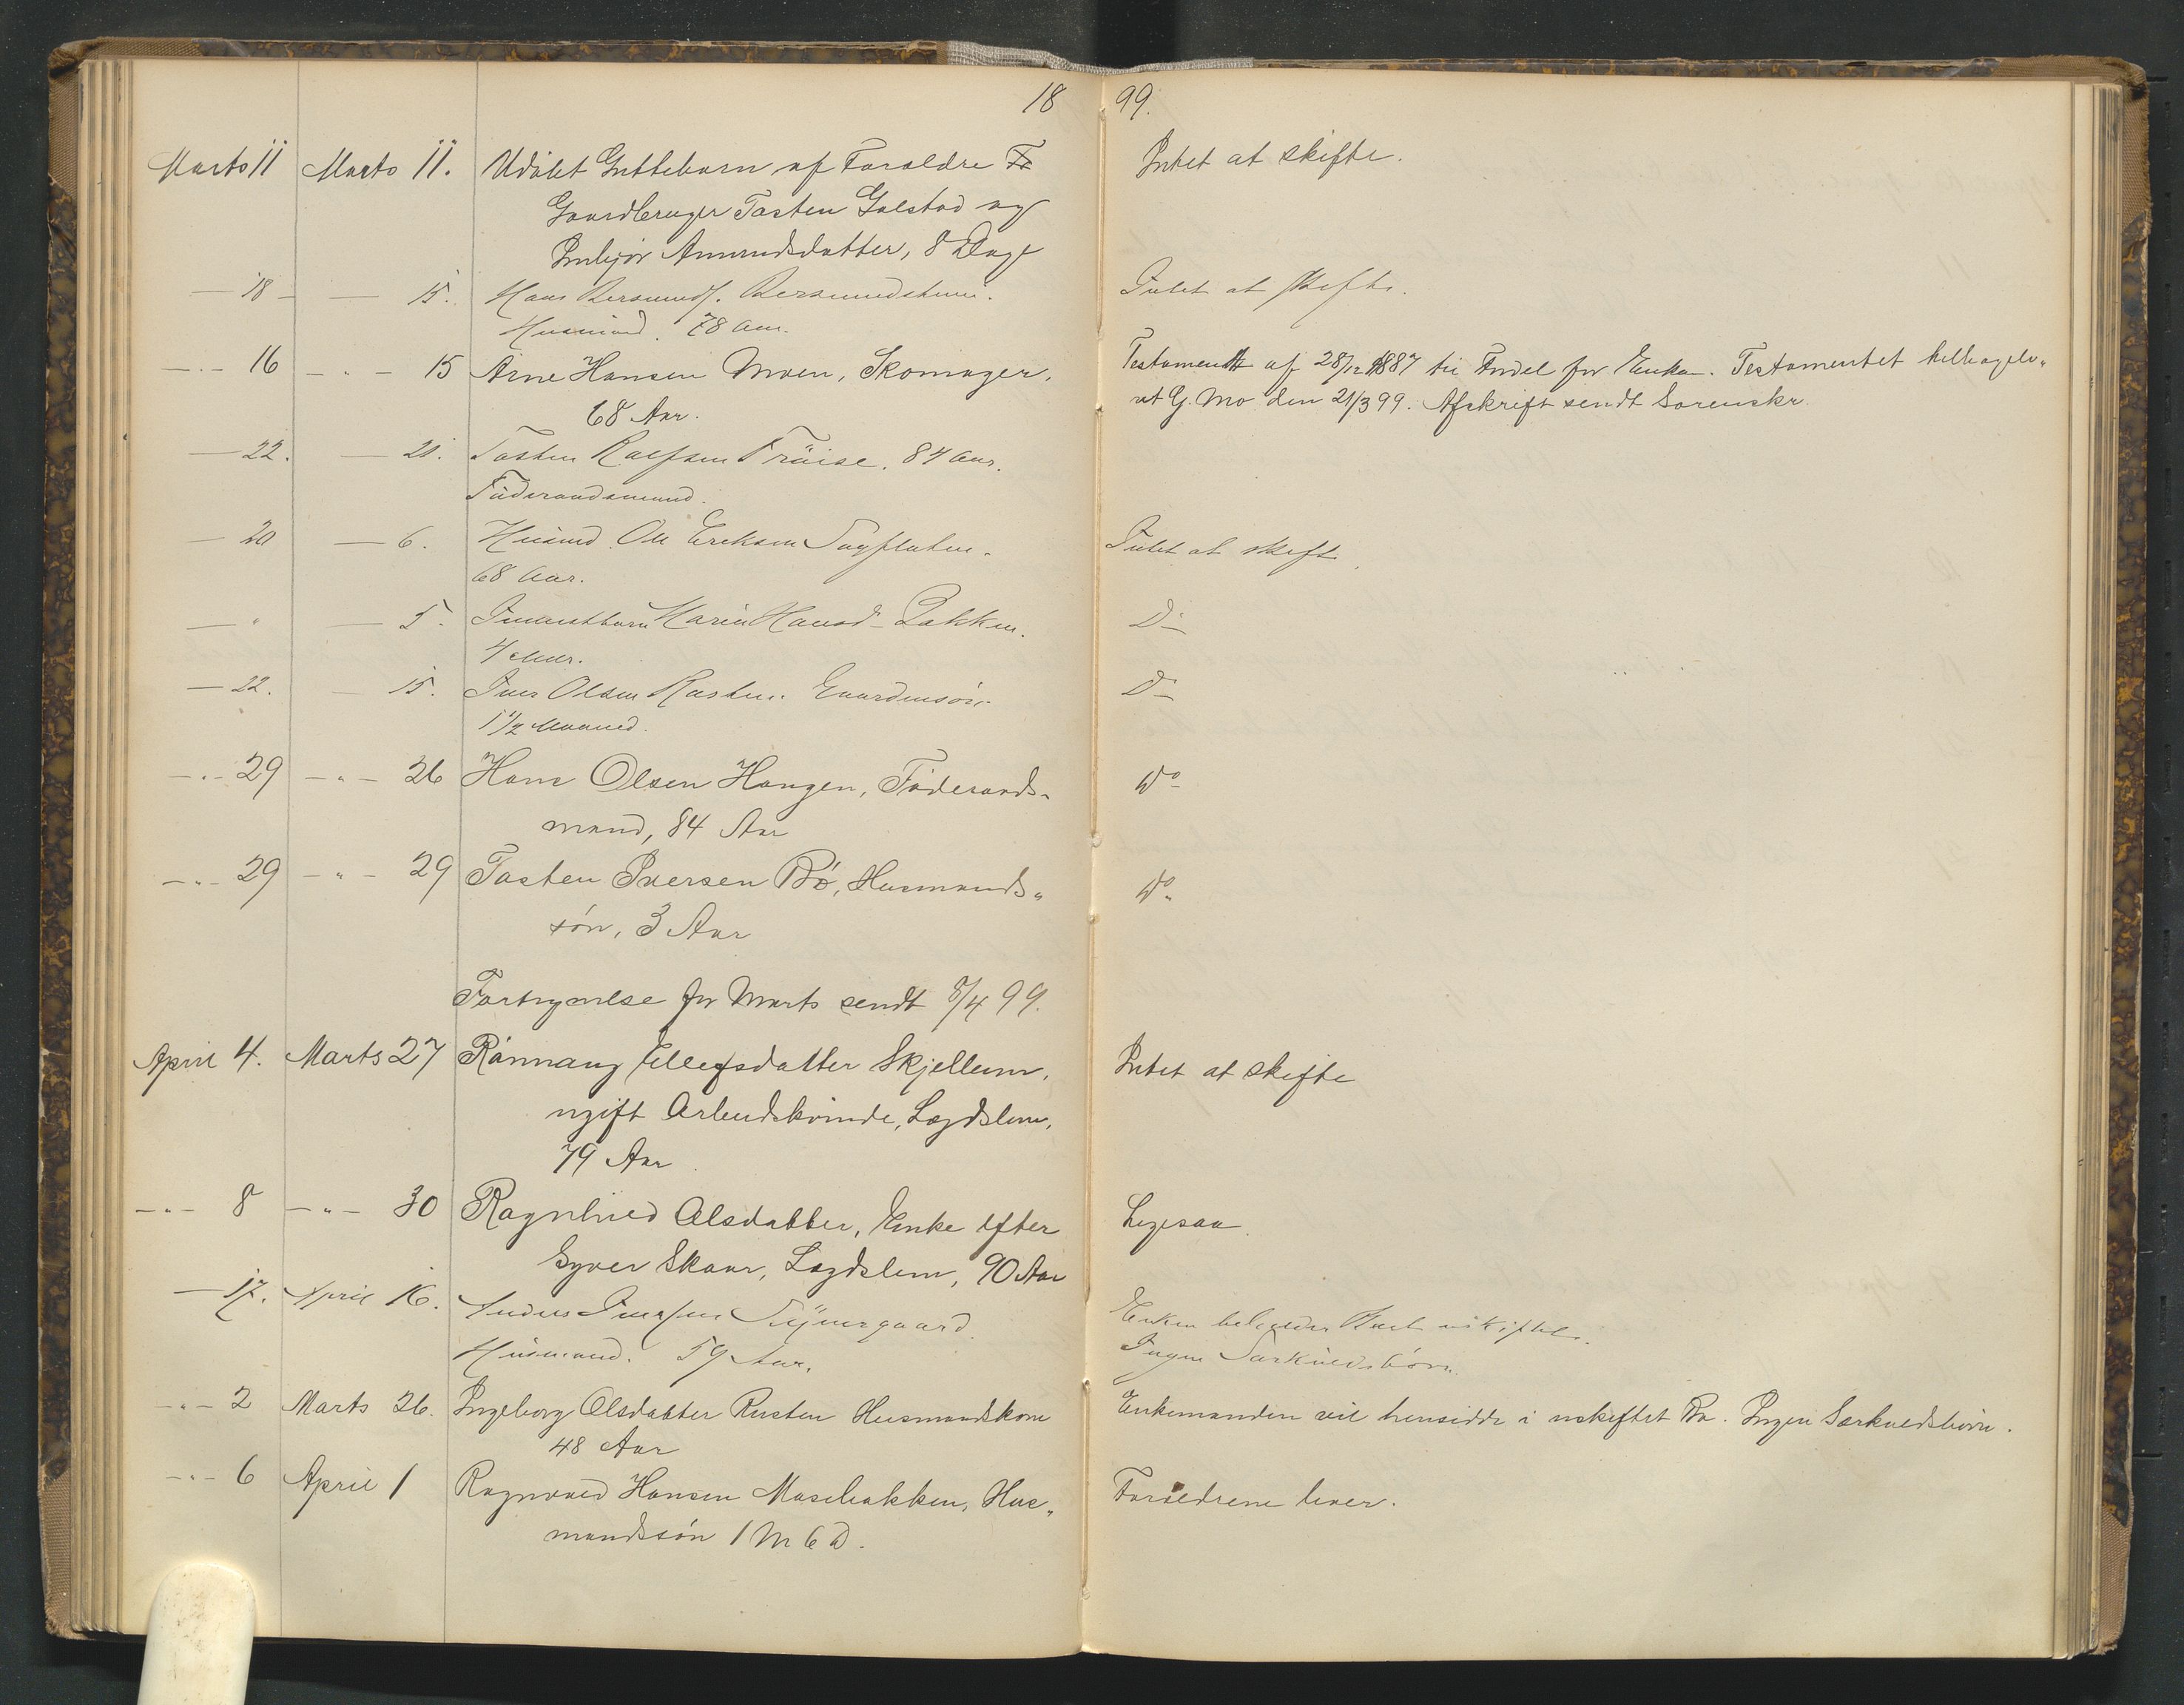 18 99.
Marts 11 Marts 11. Udöbt Guttebarn af Forældre Fr Intet at skifte.
Gaardbruger Tosten Golstad og
Imbjör Amundsdatter, 8 Dage
— 18 — — 15. Hans Intet at skifte.
Husmand. 78 Aar.
— " — 16 — " — 15 Arne Hansen Moen, Skomager, Testament af 28/12 1887 til Fordel for Enken. Testamentet
68 Aar. ut G. Mo den 21/3 99. Afskrift sendt Sorenskr.
— 22. — 21. Tosten Rolfsen Fröise. 84 Aar.
Föderaadsmand.
— 20 — 6. Husmd. Ole Eriksen Sagfluten. Intet at skifte
68 Aar.
— " — 5. Marie Hansd. Bakken. Do
4 Aar.
— 22. — 15. Iver Olsen Rusten. Do
1 1/2 Maaned.
— " — 29 — " — 26 Hans Olsen Haugen, Föderaads- Do
mand, 84 Aar
— " — 29 — " — 29 Tosten Iversen Bö, Husmands- Do
sön, 3 Aar
Fortegnelse for Marts sendt 8/4 99.
April 4. Marts 27 Rönnaug Ellefsdatter Skjellum, Intet at skifte
ugift Arbeidskvinde, Lægdslem,
79 Aar
— " — 8 — " — 30 Ragnhild Olsdatter, Enke efter Ligesaa.
Syver Skaar, Lægdslem, 90 Aar
— 17. April 16. Anders Enken beholder Boet uskiftet.
Husmand. 59 Aar. Ingen Særkuldsbörn.
— " — 2 Marts 26. Ingeborg Olsdatter Rusten Husmandskone Enkemanden vil hensidde i uskiftet Bo. Ingen Særkuldsbörn.
48 Aar
— " — 6 April 1 Ragnvald Hansen Mosebakken, Hus- Forældrene lever.
mandssön 1 M 6 D.